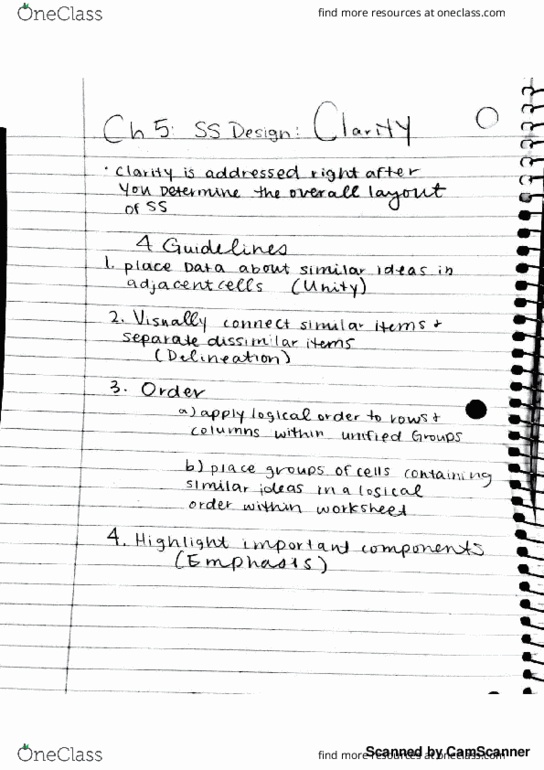 OneClass
find more resources at oneclass.com
Ch 5: SS Design: Clarity
• Clarity is addressed right after
You Determine the overall layout
of SS
4 Guidelines
1. place Data about similar ideas in
adjacent cells (Unity)
2. Visually connect similar items +
separate dissimilar items
(Delineation)
3. Order
a) apply logical order to rows +
columns within unified Groups
b) place groups of cells containing
similar ideas in a logical
order within worksheet
4. Highlight important components
(Emphasis)
OneClass
find more resources at oneclass.com
Scanned by CamScanner